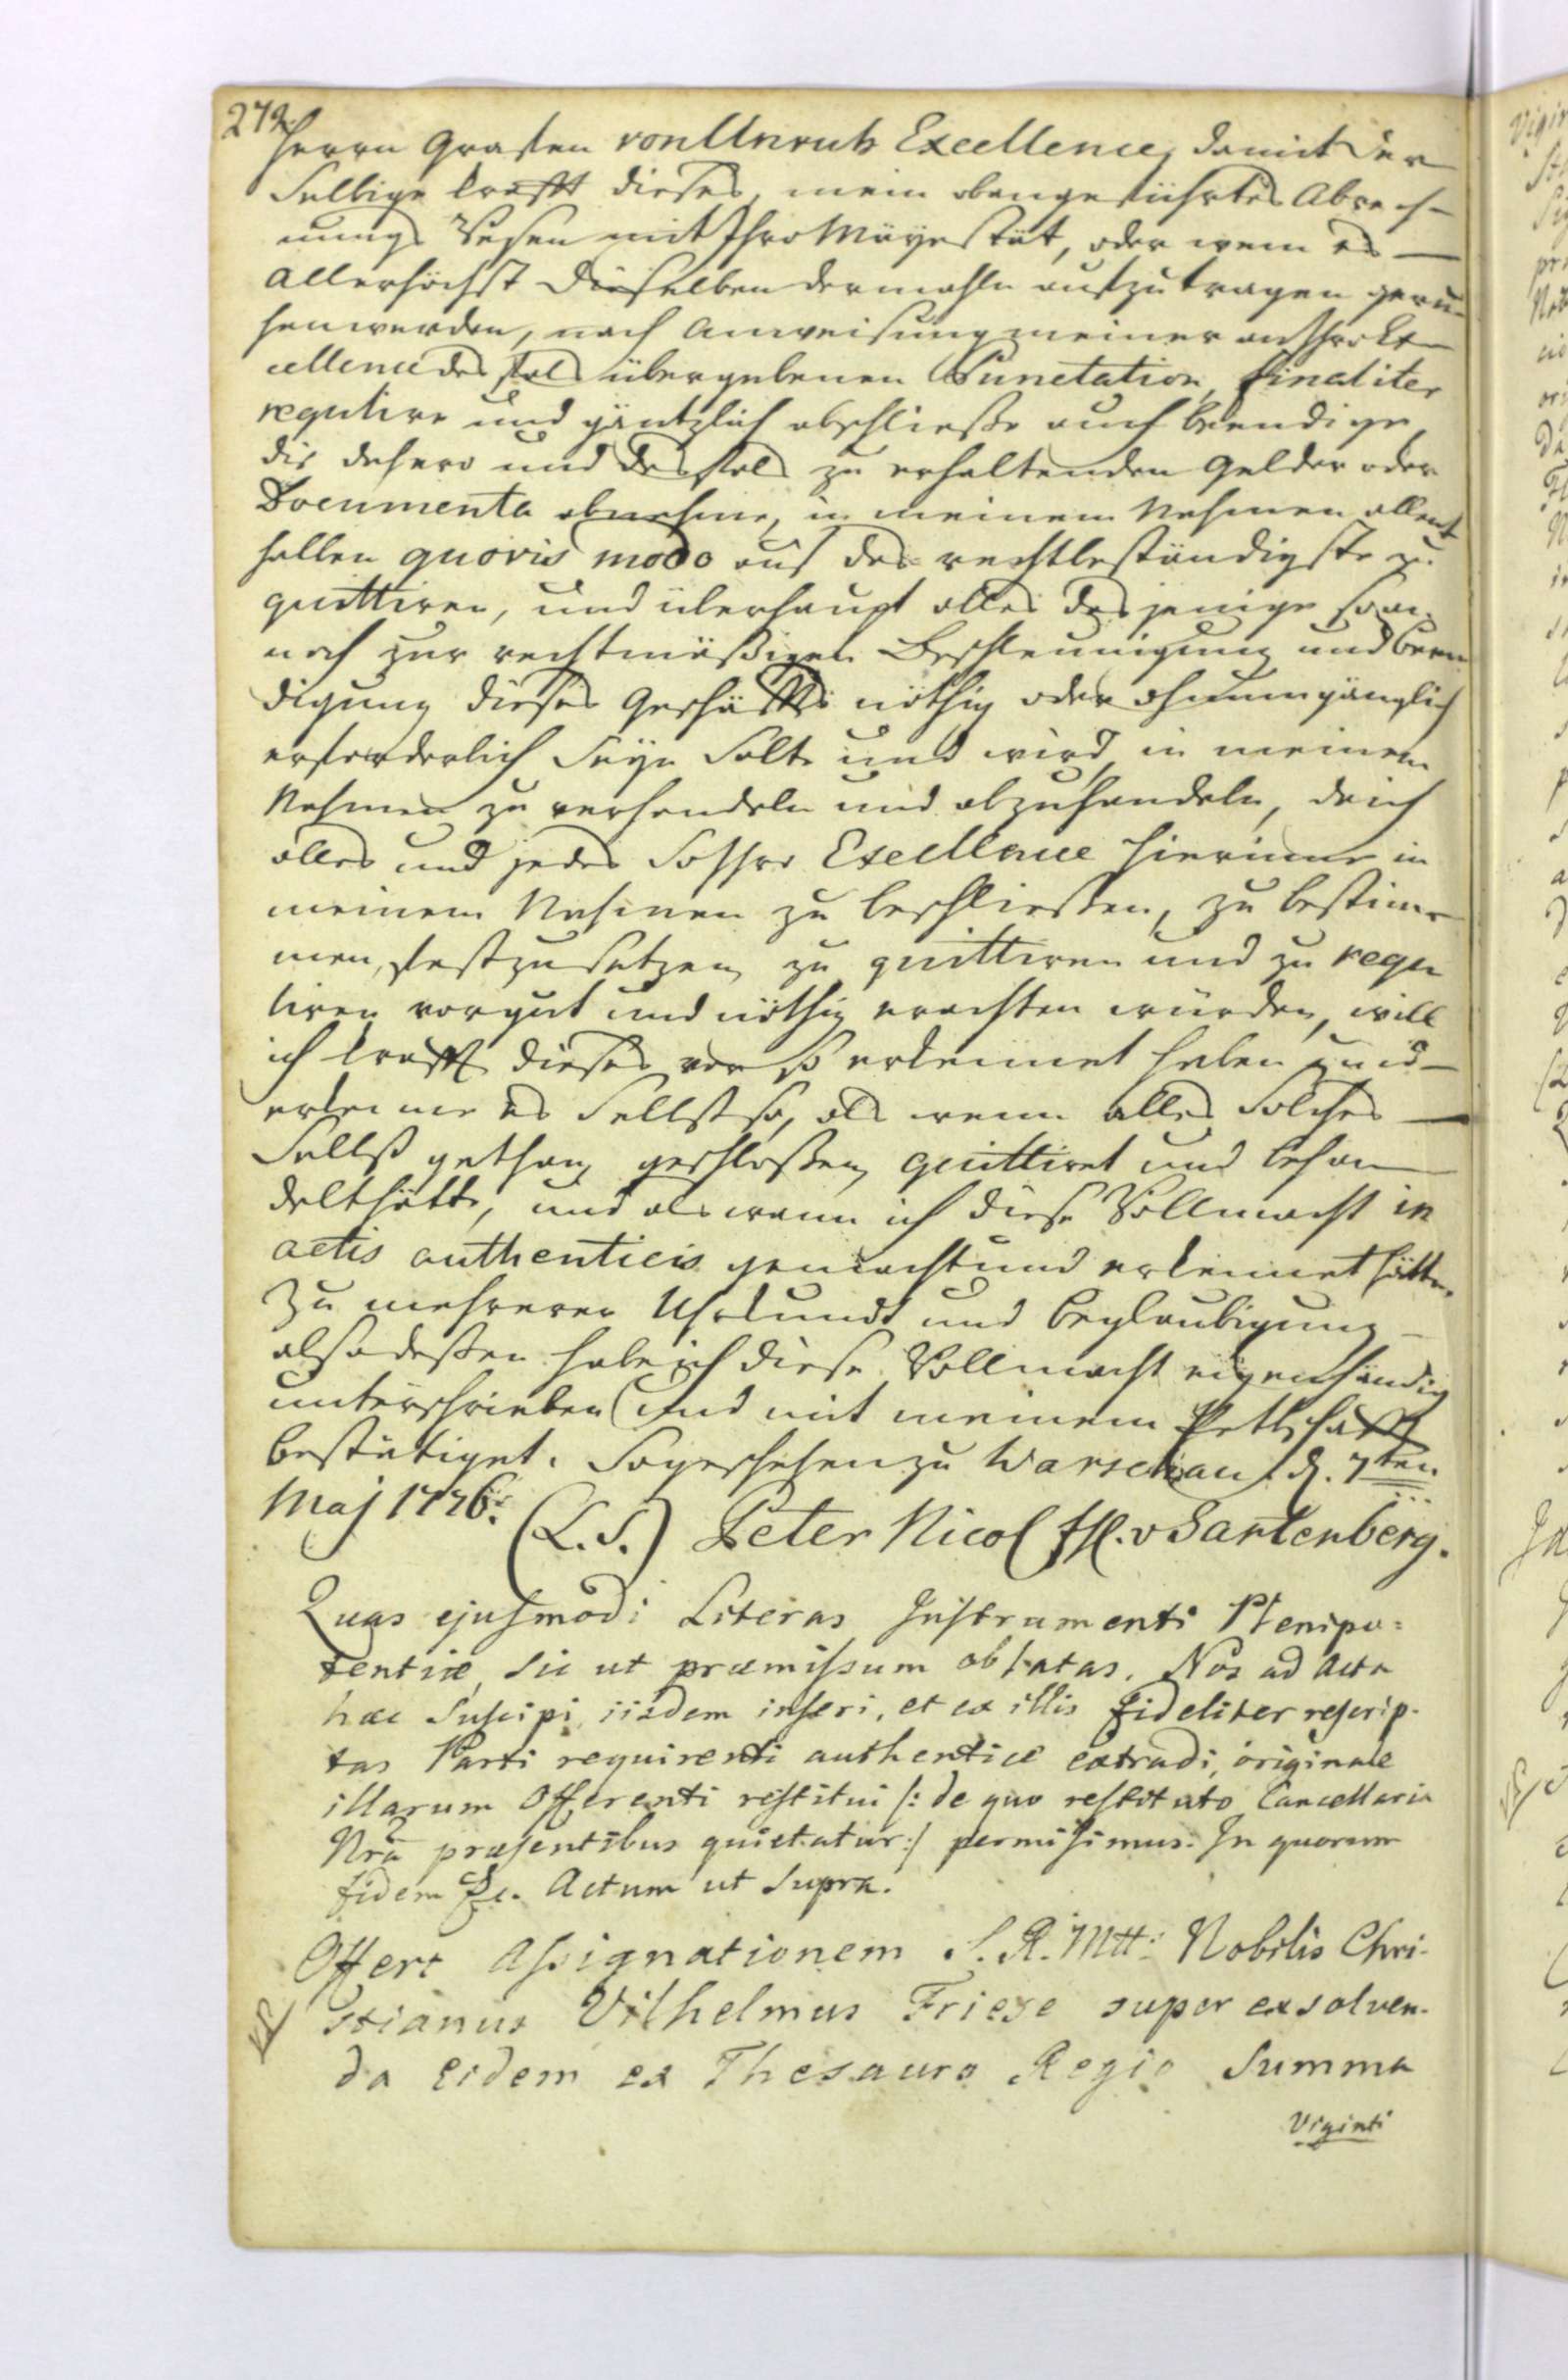 272.
Herrn Grafen von Unruh Excellence, damit Der
Selbige krafft dieses, mein obangeführtes Abrech-
nungs Wesen mit Ihro Mäyestät, oder wem es —
Allerhöchst Dieselben dermahln aufzutragen geru-
hen werden, nach Anweisung meiner an Ihro Ex-
cellence desfals übergebenen Punctation, finaliter
regulire und gäntzlich abschließe auch beendige,
die dahero und desfals zu erhaltenden Gelder oder
Documenta abnehme, in meinem Nahmen allent
halben quovis modo auf das rechtbeständigste zu
quittiren, und überhaupt alles dasjenige so an
noch zur rechtmäßigen Beschleunigung und Been
digung dieses Geschäffts nöthig oder ohnumgänglich
erforderlich seyn solte und wird, in meinem
Nahmen zu verhandeln und abzuhandeln, da ich
alles und jedes so Ihro Excellence hierinne in
meinem Nahmen zu beschließen, zu bestim-
men, festzusetzen, zu quittiren und zu regu
liren vor gut und nöthig erachten würden, will
ich krafft dieses vor so erkennet haben und —
erkenne es selbst so, als wenn alles solches —
selbst gethan, geschloßen, quittiret und behan
delt hätte, und als wenn ich diese Vollmacht in
actis authenticis gemacht und erkennet hätte.
Zu mehrerer Uhrkundt und Beglaubigung —
also deßen habe ich diese Vollmacht eigenhändig
unterschrieben und mit meinem Pettschafft
bestätiget. So geschehen zu Warschau d. 7ten
Maj 1776. (L.S.) Peter Nicol v Gartenberg.
Quas ejusmodi Literas Instrumenti Plenipo=
tentiæ, sic ut præmissum oblatas, Nos ad Acta
hæc suscipi, iisdem inseri, et ex illis fideliter rescrip-
tas Parti requirenti authentice extradi, originale
illarum Offerenti restitui /: de quo restituto Cancellaria
Nrã præsentibus quietatur :/ permisimus. In quorum
fidem &c. Actum ut supra.
Offert Assignationem S. R. Mtt: Nobilis Chri-
stianus Vilhelmus Friese super exsolven-
da eidem ex Thesauro Regio Summa
Viginti